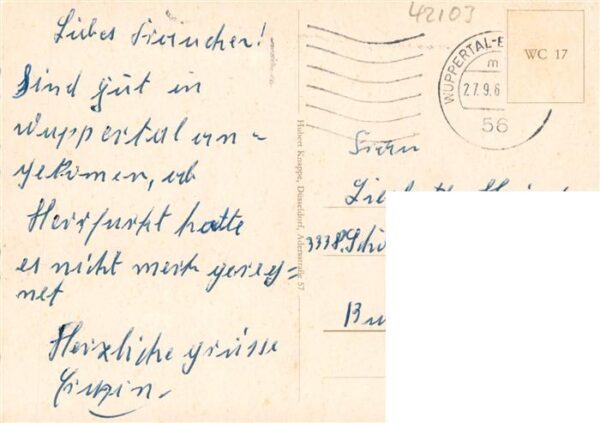 42103
Liebes Frauchen!
Sind gut in
Wuppertal an-
gekomen, ab
Herfurkt hatte
es nicht merh gereg=
net
Herzliche grüsse
Hubert Knappe, Düsseldorf, Adersstraße 57
WUPPERTAL-E
m
27.9.6
56
WC 17
Frau
3338